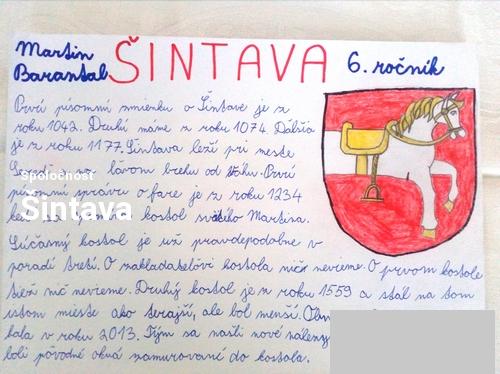 Martin
Barantal
ŠINTAVA
6. ročník
Prvú písomnú zmienku o Šintave je z
roku 1042. Druhú máme z roku 1074. Ďalšia
je z roku 1177. Šintava leží pri meste
na ľavom brehu od Váhu. Prvú
Spoločnosť
písomnú správu o fare je z roku 1234
Šintava
kostol svätého Martina.
Súčasný kostol je už pravdepodobne v
poradí tretí. O zakladateľovi kostola nič nevieme. O prvom kostole
tiež nič nevieme. Druhý kostol je z roku 1559 a stál na tom
istom mieste ako terajší, ale bol menší.
bola v roku 2013. Tým sa našli nové nálezy
boli pôvodné okná zamurované do kostola.